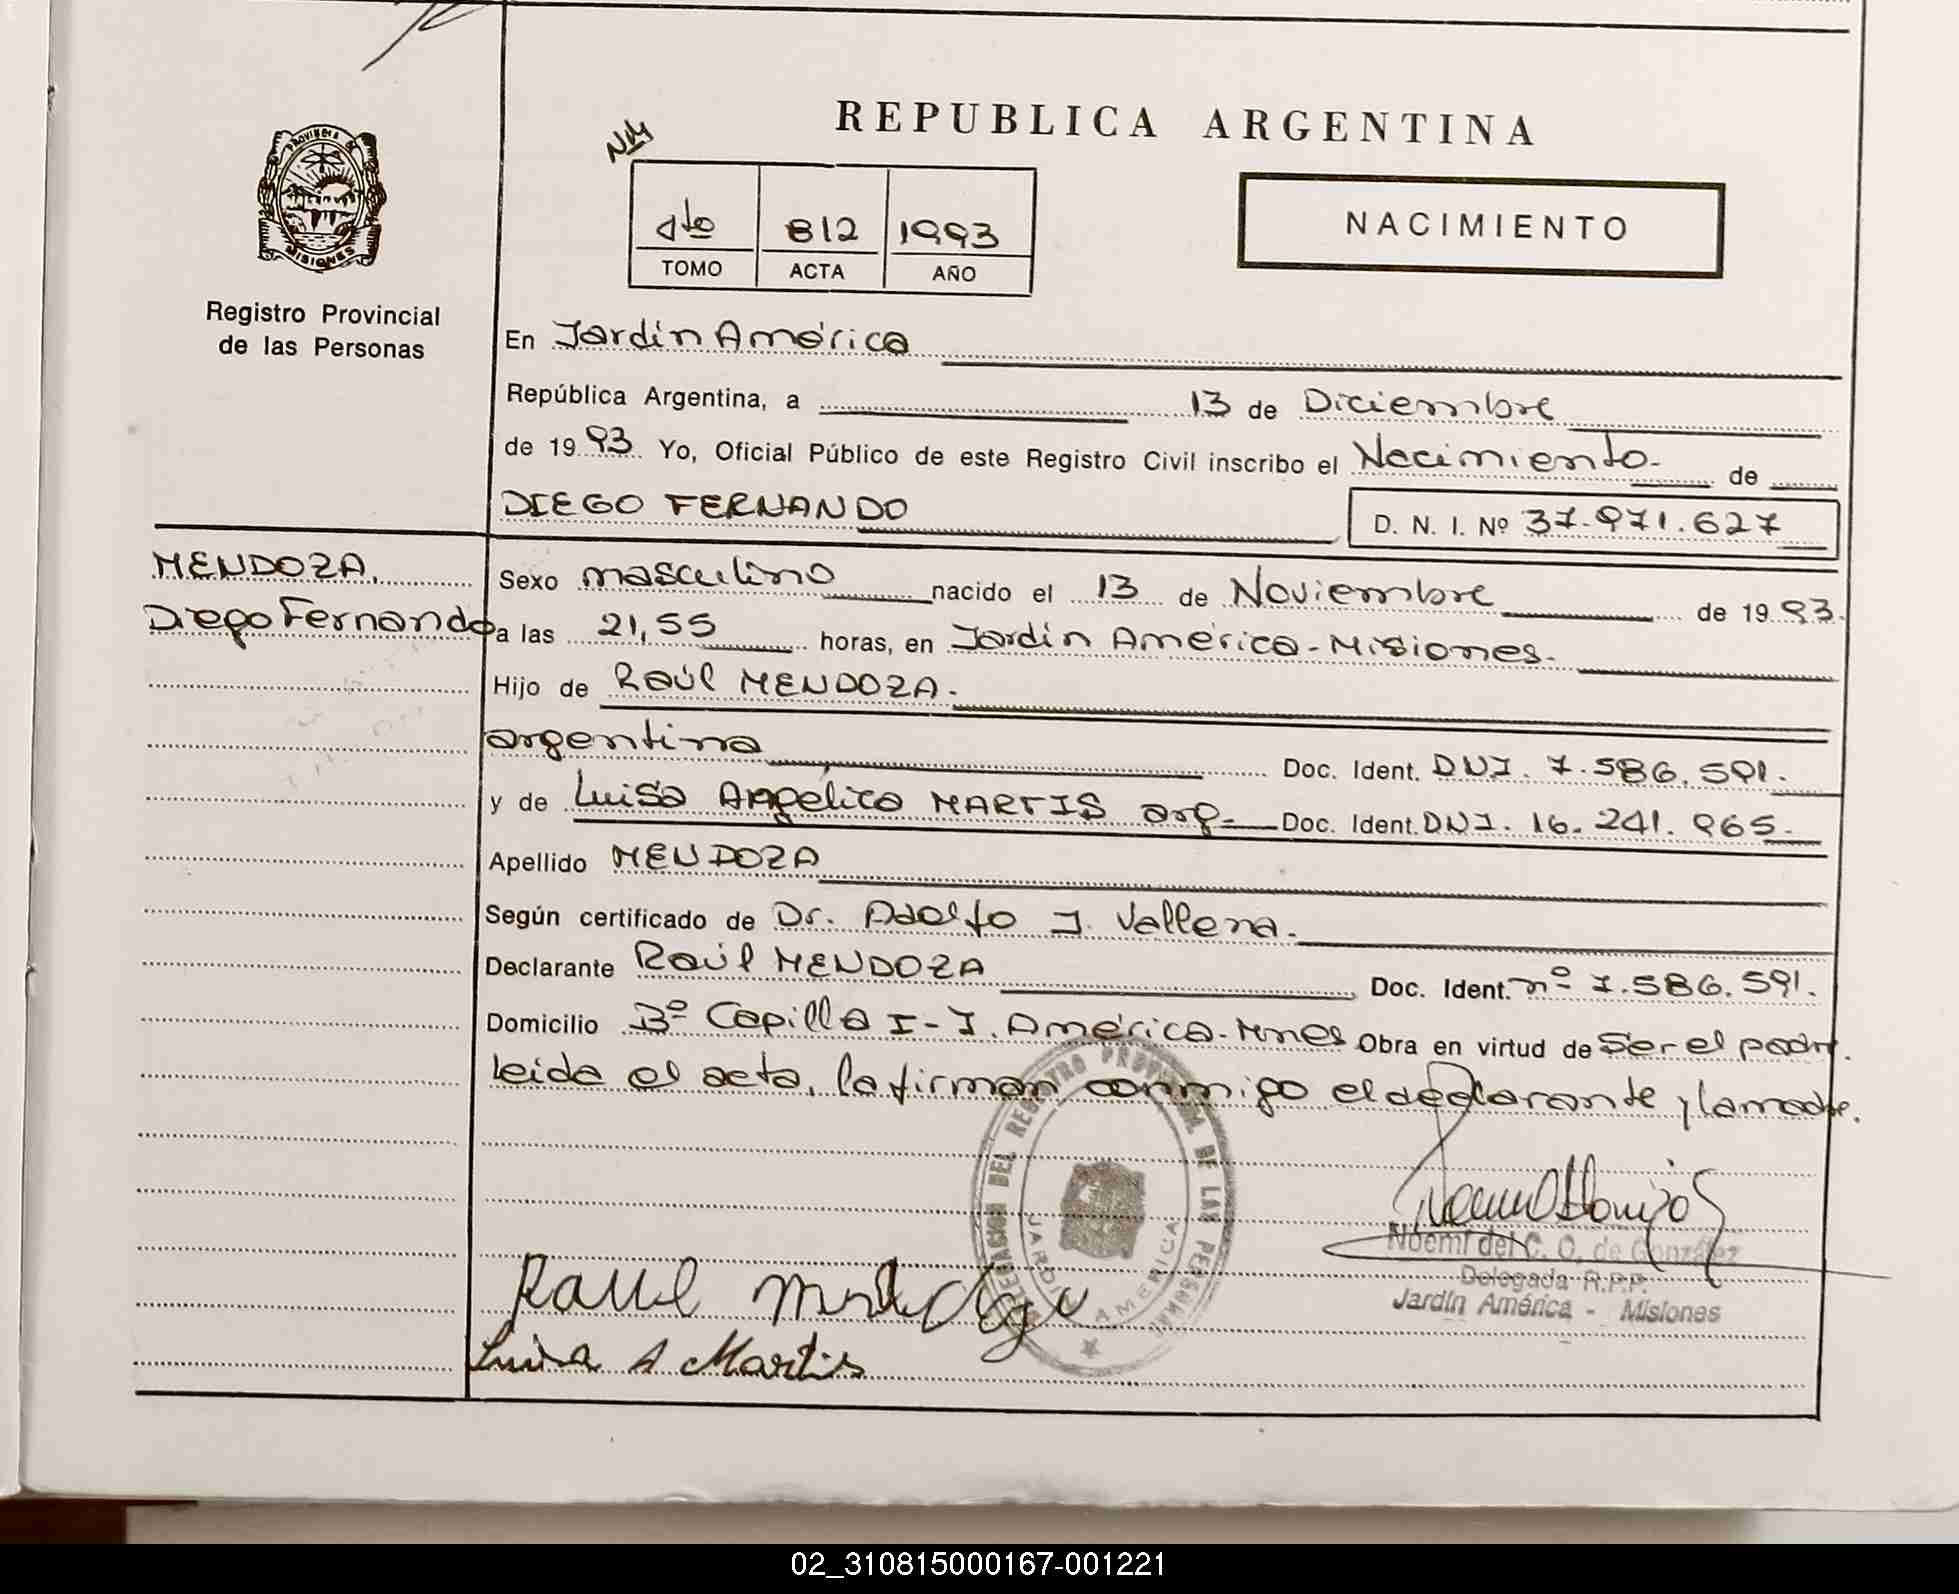 REPUBLICA ARGENTINA
PROVINCIA DE MISIONES
Registro Provincial
de las Personas
4to 812 1993
TOMO ACTA AÑO
NACIMIENTO
En Jardín América
República Argentina, a 13 de Diciembre
de 1993 Yo, Oficial Público de este Registro Civil inscribo el Nacimiento- de
DIEGO FERNANDO D. N. I. Nº 37.971.627
MENDOZA,
Diego Fernando
Sexo masculino nacido el 13 de Noviembre de 1993.
a las 21,55 horas, en Jardín América-Misiones-
Hijo de Raúl MENDOZA-
argentina Doc. Ident. DNI. 7.586.591.
y de Luisa Angélica MARTIS arg- Doc. Ident. DNI. 16.241.965-
Apellido MENDOZA
Según certificado de Dr. Adolfo J. Vallena.
Declarante Raúl MENDOZA Doc. Ident. nº 7.586.591.
Domicilio Bº Capilla I-J. América-Mnes Obra en virtud de Ser el padre.
leída el acta, la firman conmigo el declarante y la madre.
DELEGACION DEL REGISTRO PROVINCIAL DE LAS PERSONAS
JARDIN AMERICA
Noemí del C. O. de González
Delegada R.P.P.
Jardín América - Misiones
Raul Mendoza
Luisa A Martis
02_310815000167-001221